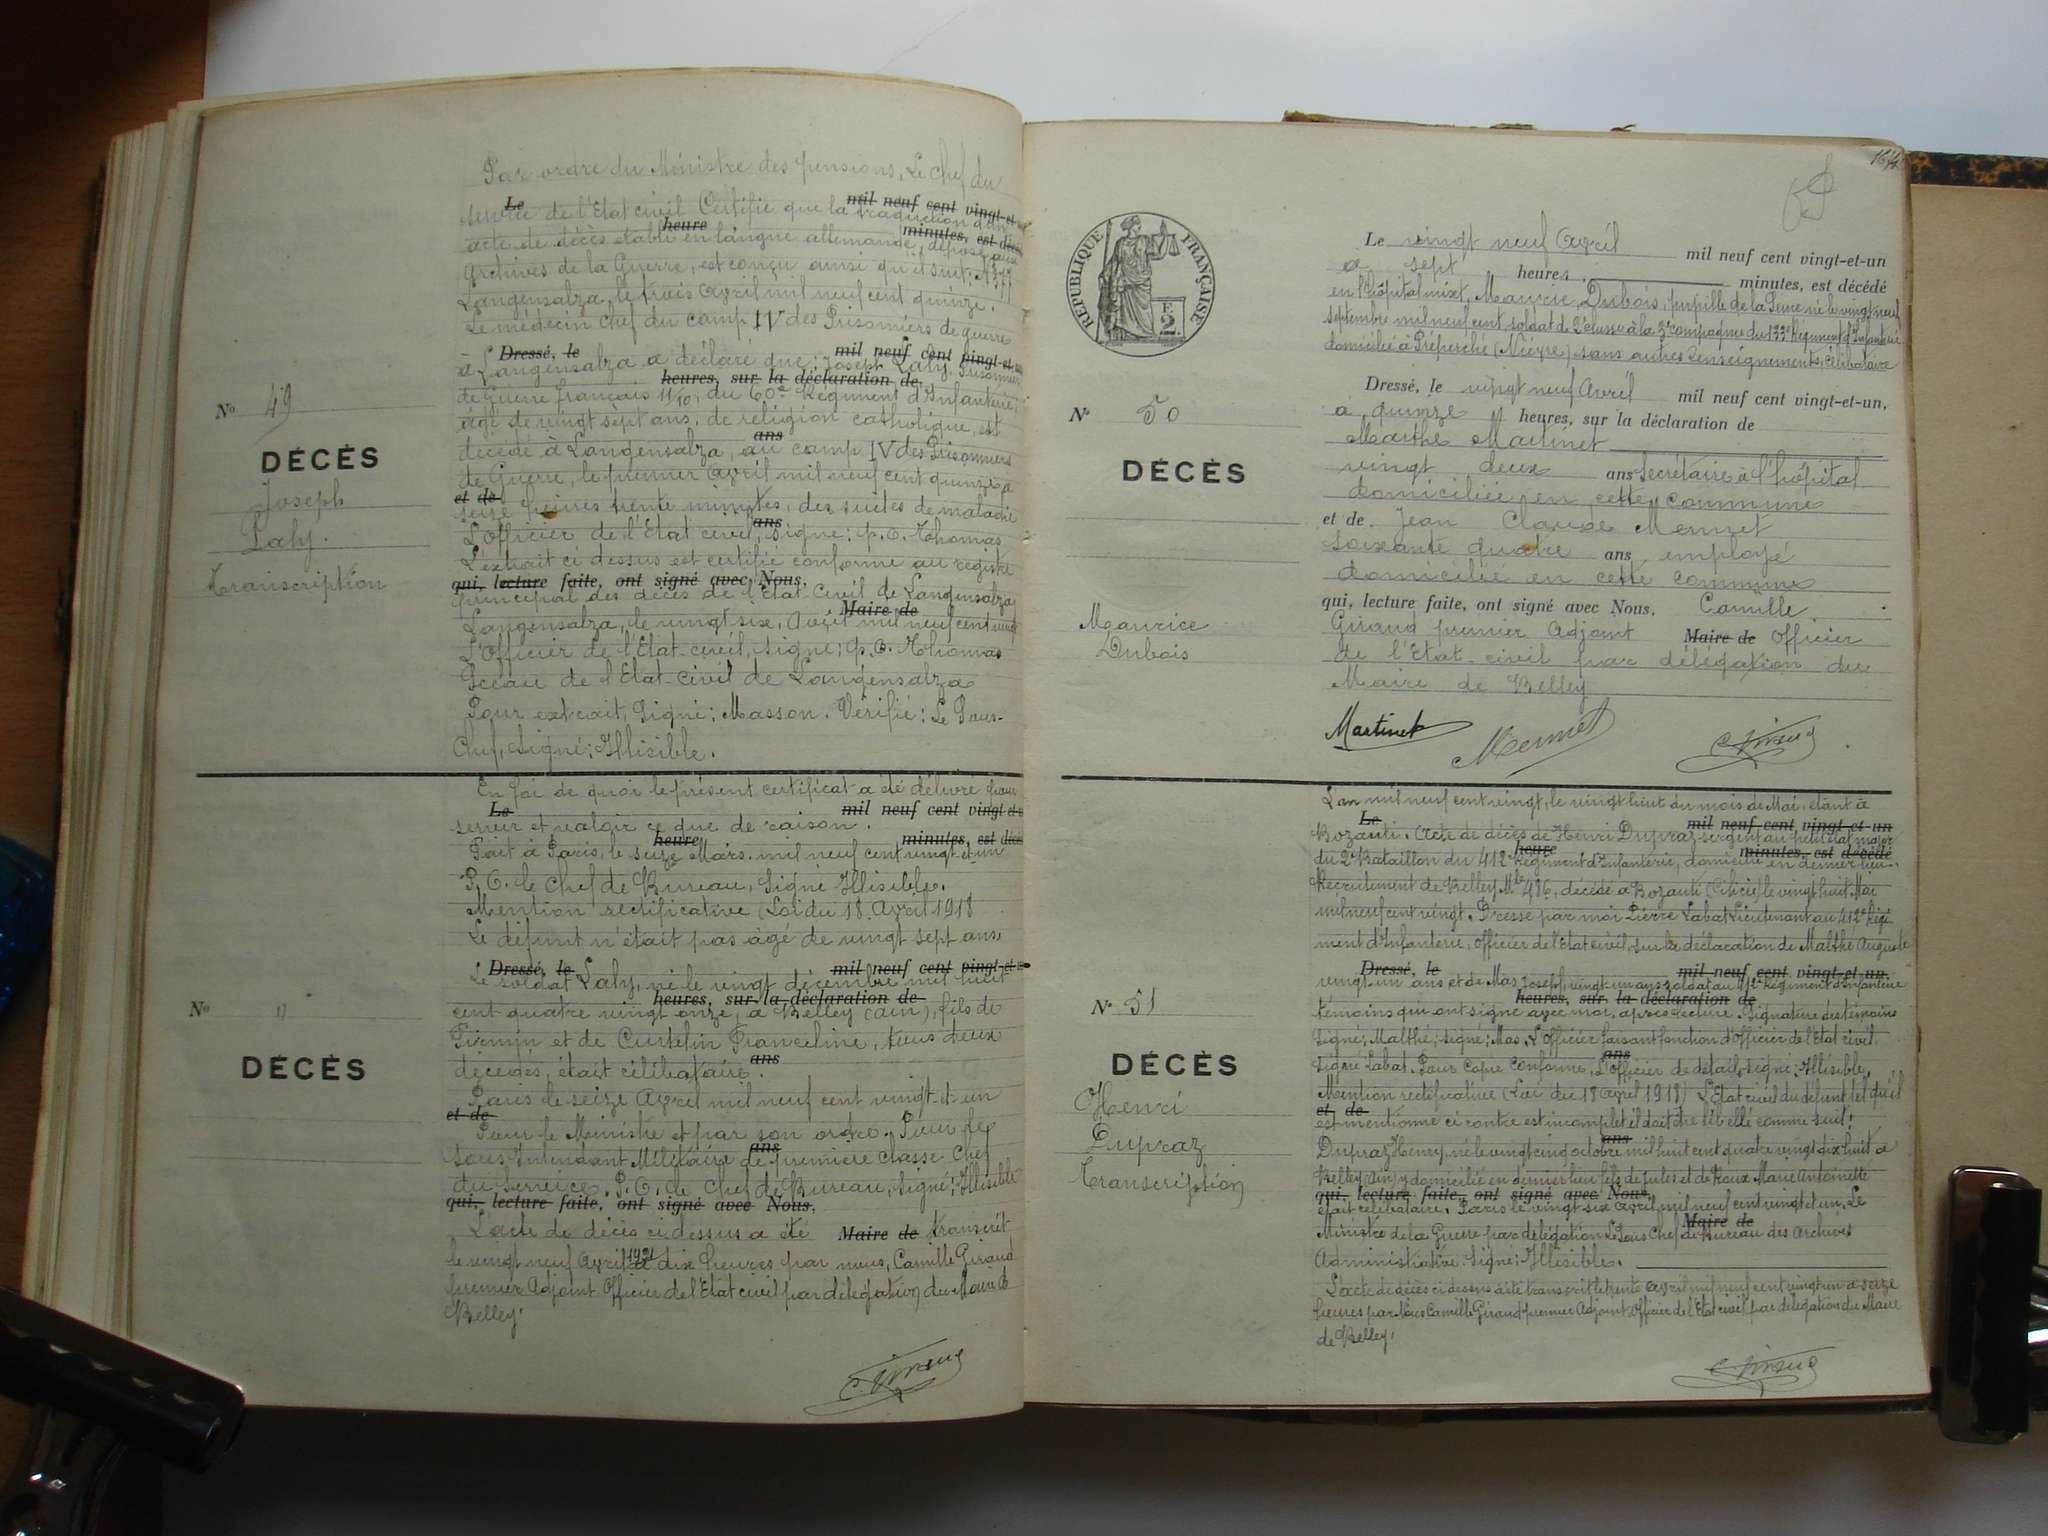 Par ordre du Ministre des pensions, Le chef du
Le mil neuf cent vingt-et
service de l'Etat civil Certifie que la traduction d'un
heure minutes, est décé
acte de décès établi en langue allemande, déposé aux
Archives de la Guerre, est conçu ainsi qu'il suit: N° 377
Langensalza, le trois Avril mil neuf cent quinze.
Le médecin chef du camp IV des Prisonniers de guerre
Dressé, le mil neuf cent vingt-et-un
à Langensalza a déclaré que, Joseph Laly, Prisonnier
heures, sur la déclaration de
de Guerre français 11/10, du 60e Régiment d'Infanterie,
âgé de vingt sept ans, de religion catholique, est
ans
décédé à Langensalza, au camp IV des Prisonniers
de Guerre, le premier Avril mil neuf cent quinze à
et de
seize heures trente minutes, des suites de maladie
ans
L'officier de l'Etat civil, signé: p. O. Thomas
L'extrait ci dessus est certifié conforme au registre
qui, lecture faite, ont signé avec Nous,
principal des décès de l'Etat-Civil de Langensalza
Maire de
Langensalza, le vingt six, Août mil neuf cent vingt
L'Officier de l'Etat-civil, Signé; p. O. Thomas
Sceau de l'Etat-civil de Langensalza
Pour extrait, Signé; Masson. Vérifié: Le Sous-
Chef, Signé; Illisible.
N° 49
DÉCÈS
Joseph
Laly.
Transcription
En foi de quoi le présent certificat a été délivré pour
Le mil neuf cent vingt-et-u
servir et valoir ce que de raison.
heure minutes, est décé
Fait à Paris, le seize Mars mil neuf cent vingt et un
P. O. le Chef de Bureau, Signé Illisible.
Mention rectificative (Loi du 18 Avril 1918
Le défunt n'était pas âgé de vingt sept ans,
Dressé, le mil neuf cent vingt-et-un
Le soldat Laly, né le vingt décembre mil huit
heures, sur la déclaration de
cent quatre vingt onze, à Belley (Ain), fils de
Firmin et de Curtelin Franceline, tous deux
ans
décédés, était célibataire.
Paris le seize Avril mil neuf cent vingt et un
et de
Pour le Ministre et par son ordre. Pour le
ans
Sous-Intendant Militaire de première classe Chef
du Service. P. O. le Chef de Bureau, Signé; Illisible
qui, lecture faite, ont signé avec Nous,
L'acte de décès ci dessus a été Maire de transcrit
le vingt neuf Avril 1921 à dix heures par nous, Camille Giraud
premier Adjoint Officier de l'Etat civil par délégation du Maire de
Belley.
N° "
DÉCÈS
C. Giraud
164
RÉPUBLIQUE FRANÇAISE
F.
2.
Le vingt neuf Avril mil neuf cent vingt-et-un
à sept heures minutes, est décédé
en l'hôpital mixt, Maurice Dubois, pupille de la Seine né le vingt neuf
septembre mil neuf cent soldat de 2e classe à la 3e compagnie du 133e Régiment d'Infanterie
domicilié à Préporché (Nièvre) sans autres renseignements, célibataire
Dressé, le vingt neuf Avril mil neuf cent vingt-et-un,
à quinze heures, sur la déclaration de
Marthe Martinet
vingt deux ans Secrétaire à l'hôpital
domiciliée en cette commune
et de Jean Claude Mermet
soixante quatre ans employé
domicilié en cette commune
qui, lecture faite, ont signé avec Nous, Camille
Giraud premier Adjoint Maire de Officier
de l'Etat-civil par délégation du
Maire de Belley
N° 50
DÉCÈS
Maurice
Dubois
Martinet Mermet C. Giraud
L'an mil neuf cent vingt, le vingt huit du mois de Mai, étant à
Le mil neuf cent vingt-et-un
Bozanti. Acte de décès de Henri Dupraz sergent au petit état major
heure minutes, est décédé
du 2e Bataillon du 412e Régiment d'Infanterie, domicilié en dernier lieu.
Recrutement de Belley Mle 416, décédé à Bozanti (Cilicie) le vingt huit Mai
mil neuf cent vingt. Dressé par moi Pierre Labat Lieutenant au 412e Régi
ment d'Infanterie, officier de l'Etat civil, sur la déclaration de Malthé Auguste
Dressé, le mil neuf cent vingt-et-un,
vingt un ans et de Mas Joseph, vingt un ans soldat au 412e Régiment d'Infanterie
heures, sur la déclaration de
témoins qui ont signé avec moi, après lecture. Signature des témoins
Signé; Malthé; signé; Mas, L'Officier faisant fonction d'Officier de l'Etat civil.
ans
Signé Labat. Pour Copie conforme, L'Officier de détail, signé; Illisible.
Mention rectificative (Loi du 18 Avril 1918) L'Etat civil du défunt tel qu'il
et de
est mentionné ci contre est incomplet il doit être libellé comme suit!
ans
Dupraz Henry, né le vingt cinq octobre mil huit cent quatre vingt dix huit à
Belley (Ain) y domicilié en dernier lieu fils de Jules et de Roux Marie Antoinette
qui, lecture faite, ont signé avec Nous,
était célibataire. Paris le vingt six Avril mil neuf cent vingt et un, Le
Maire de
Ministre de la Guerre par délégation Le Sous Chef de Bureau des Archives
Administrative. Signé; Illisible.
L'acte de décès ci dessus a été transcrit le trente Avril mil neuf cent vingt un à seize
heures par Nous Camille Giraud premier Adjoint Officier de l'Etat civil par délégation du Maire
de Belley.
N° 51
DÉCÈS
Henri
Dupraz
Transcription
C. Giraud